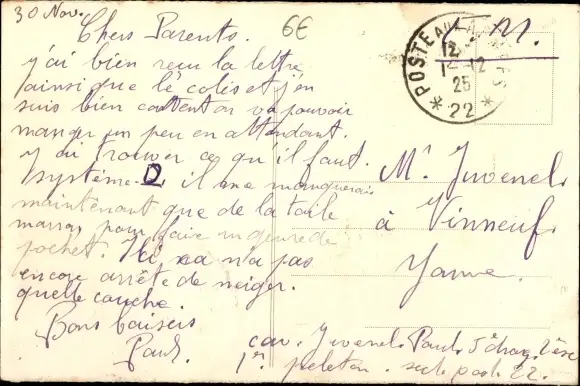 30 Nov.
6€
Chers Parents.
j'ai bien reçu la lettre
ainsi que le colis et j'en
suis bien content on va pouvoir
manger un peu en attendant.
j'ai trouver ce qu'il faut.
système D. il me manquerais
maintenant que de la toile
marron pour faire un genre de
pochet. Ici ça n'a pas
encore arrête de neiger.
quelle couche.
Bons baisers
Paul.
F. M.
POSTE AUX ARMÉES
12
1-12
25
* 22 *
Mr Juvenel.
à Vinneuf.
Yonne.
cav. Juvenel Paul 5e 2e esc
1er peloton. sect. post. 22.